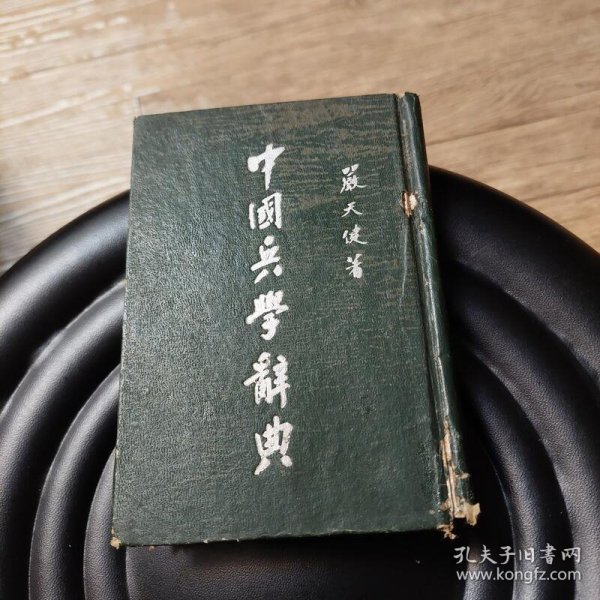 嚴天健著
中國兵學辭典
孔夫子旧書网
www.kongfz.com